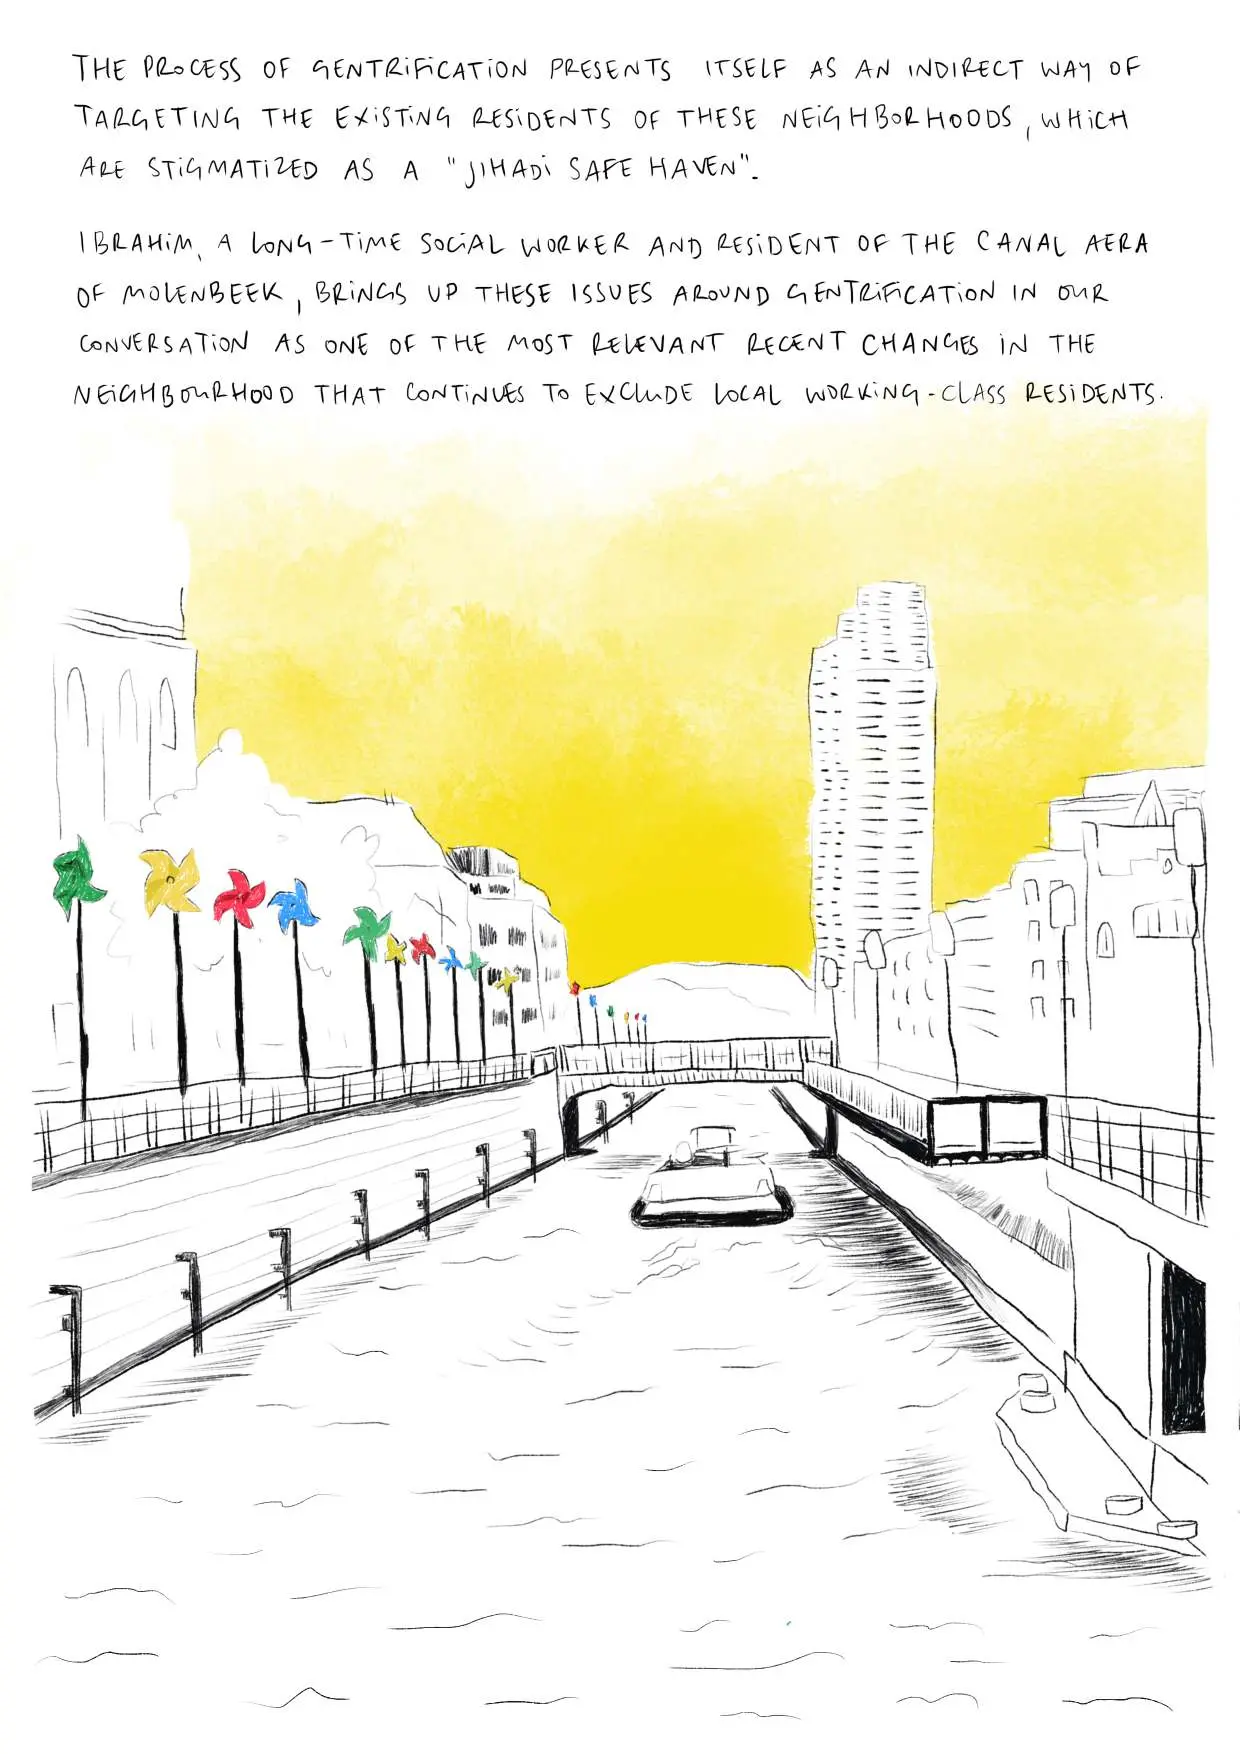 THE PROCESS OF GENTRIFICATION PRESENTS ITSELF AS AN INDIRECT WAY OF
TARGETING THE EXISTING RESIDENTS OF THESE NEIGHBORHOODS, WHICH
ARE STIGMATIZED AS A "JIHADI SAFE HAVEN".
IBRAHIM, A LONG-TIME SOCIAL WORKER AND RESIDENT OF THE CANAL AERA
OF MOLENBEEK, BRINGS UP THESE ISSUES AROUND GENTRIFICATION IN OUR
CONVERSATION AS ONE OF THE MOST RELEVANT RECENT CHANGES IN THE
NEIGHBOURHOOD THAT CONTINUES TO EXCLUDE LOCAL WORKING-CLASS RESIDENTS.